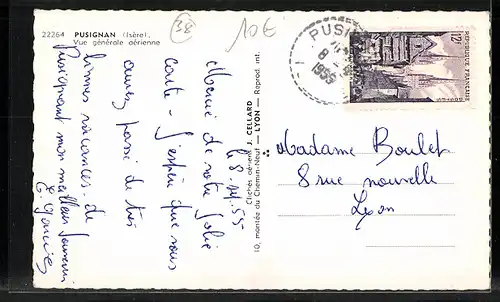 22264 PUSIGNAN (Isère).
Vue générale aérienne
38
10€
le 8.
Merci de votre jolie
carte - J'espère que vous
avez passé de très
bonnes vacances. de
Pusignan mon meilleur souvenir
Clichés aériens J. CELLARD
10, montée du Chemin-Neuf — LYON — Reprod. int.
PUSI
8
1955
12F
REPUBLIQUE FRANÇAISE
POSTES
Madame Boulet
8 rue nouvelle
Lyon